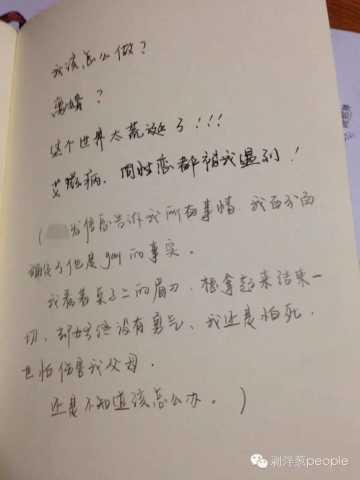 我该怎么做？
离婚？
这个世界太荒诞了！！！
艾滋病，同性恋都被我遇到！
（ 发信息告诉我所有事情，我百分百
确定了他是gay的事实。
我看着桌子上的眉刀，想拿起来结束一
切，却始终没有勇气，我还是怕死，
也怕伤害我父母，
还是不知道该怎么办。）
剥洋葱people